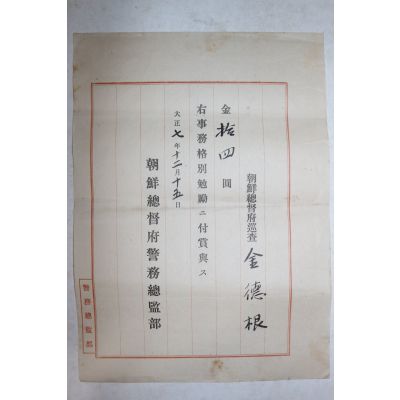 朝鮮總督府巡査 金德根
金拾四圓
右事務格別勉勵ニ付賞與ス
大正七年十二月十五日
朝鮮總督府警務總監部
警務總監部